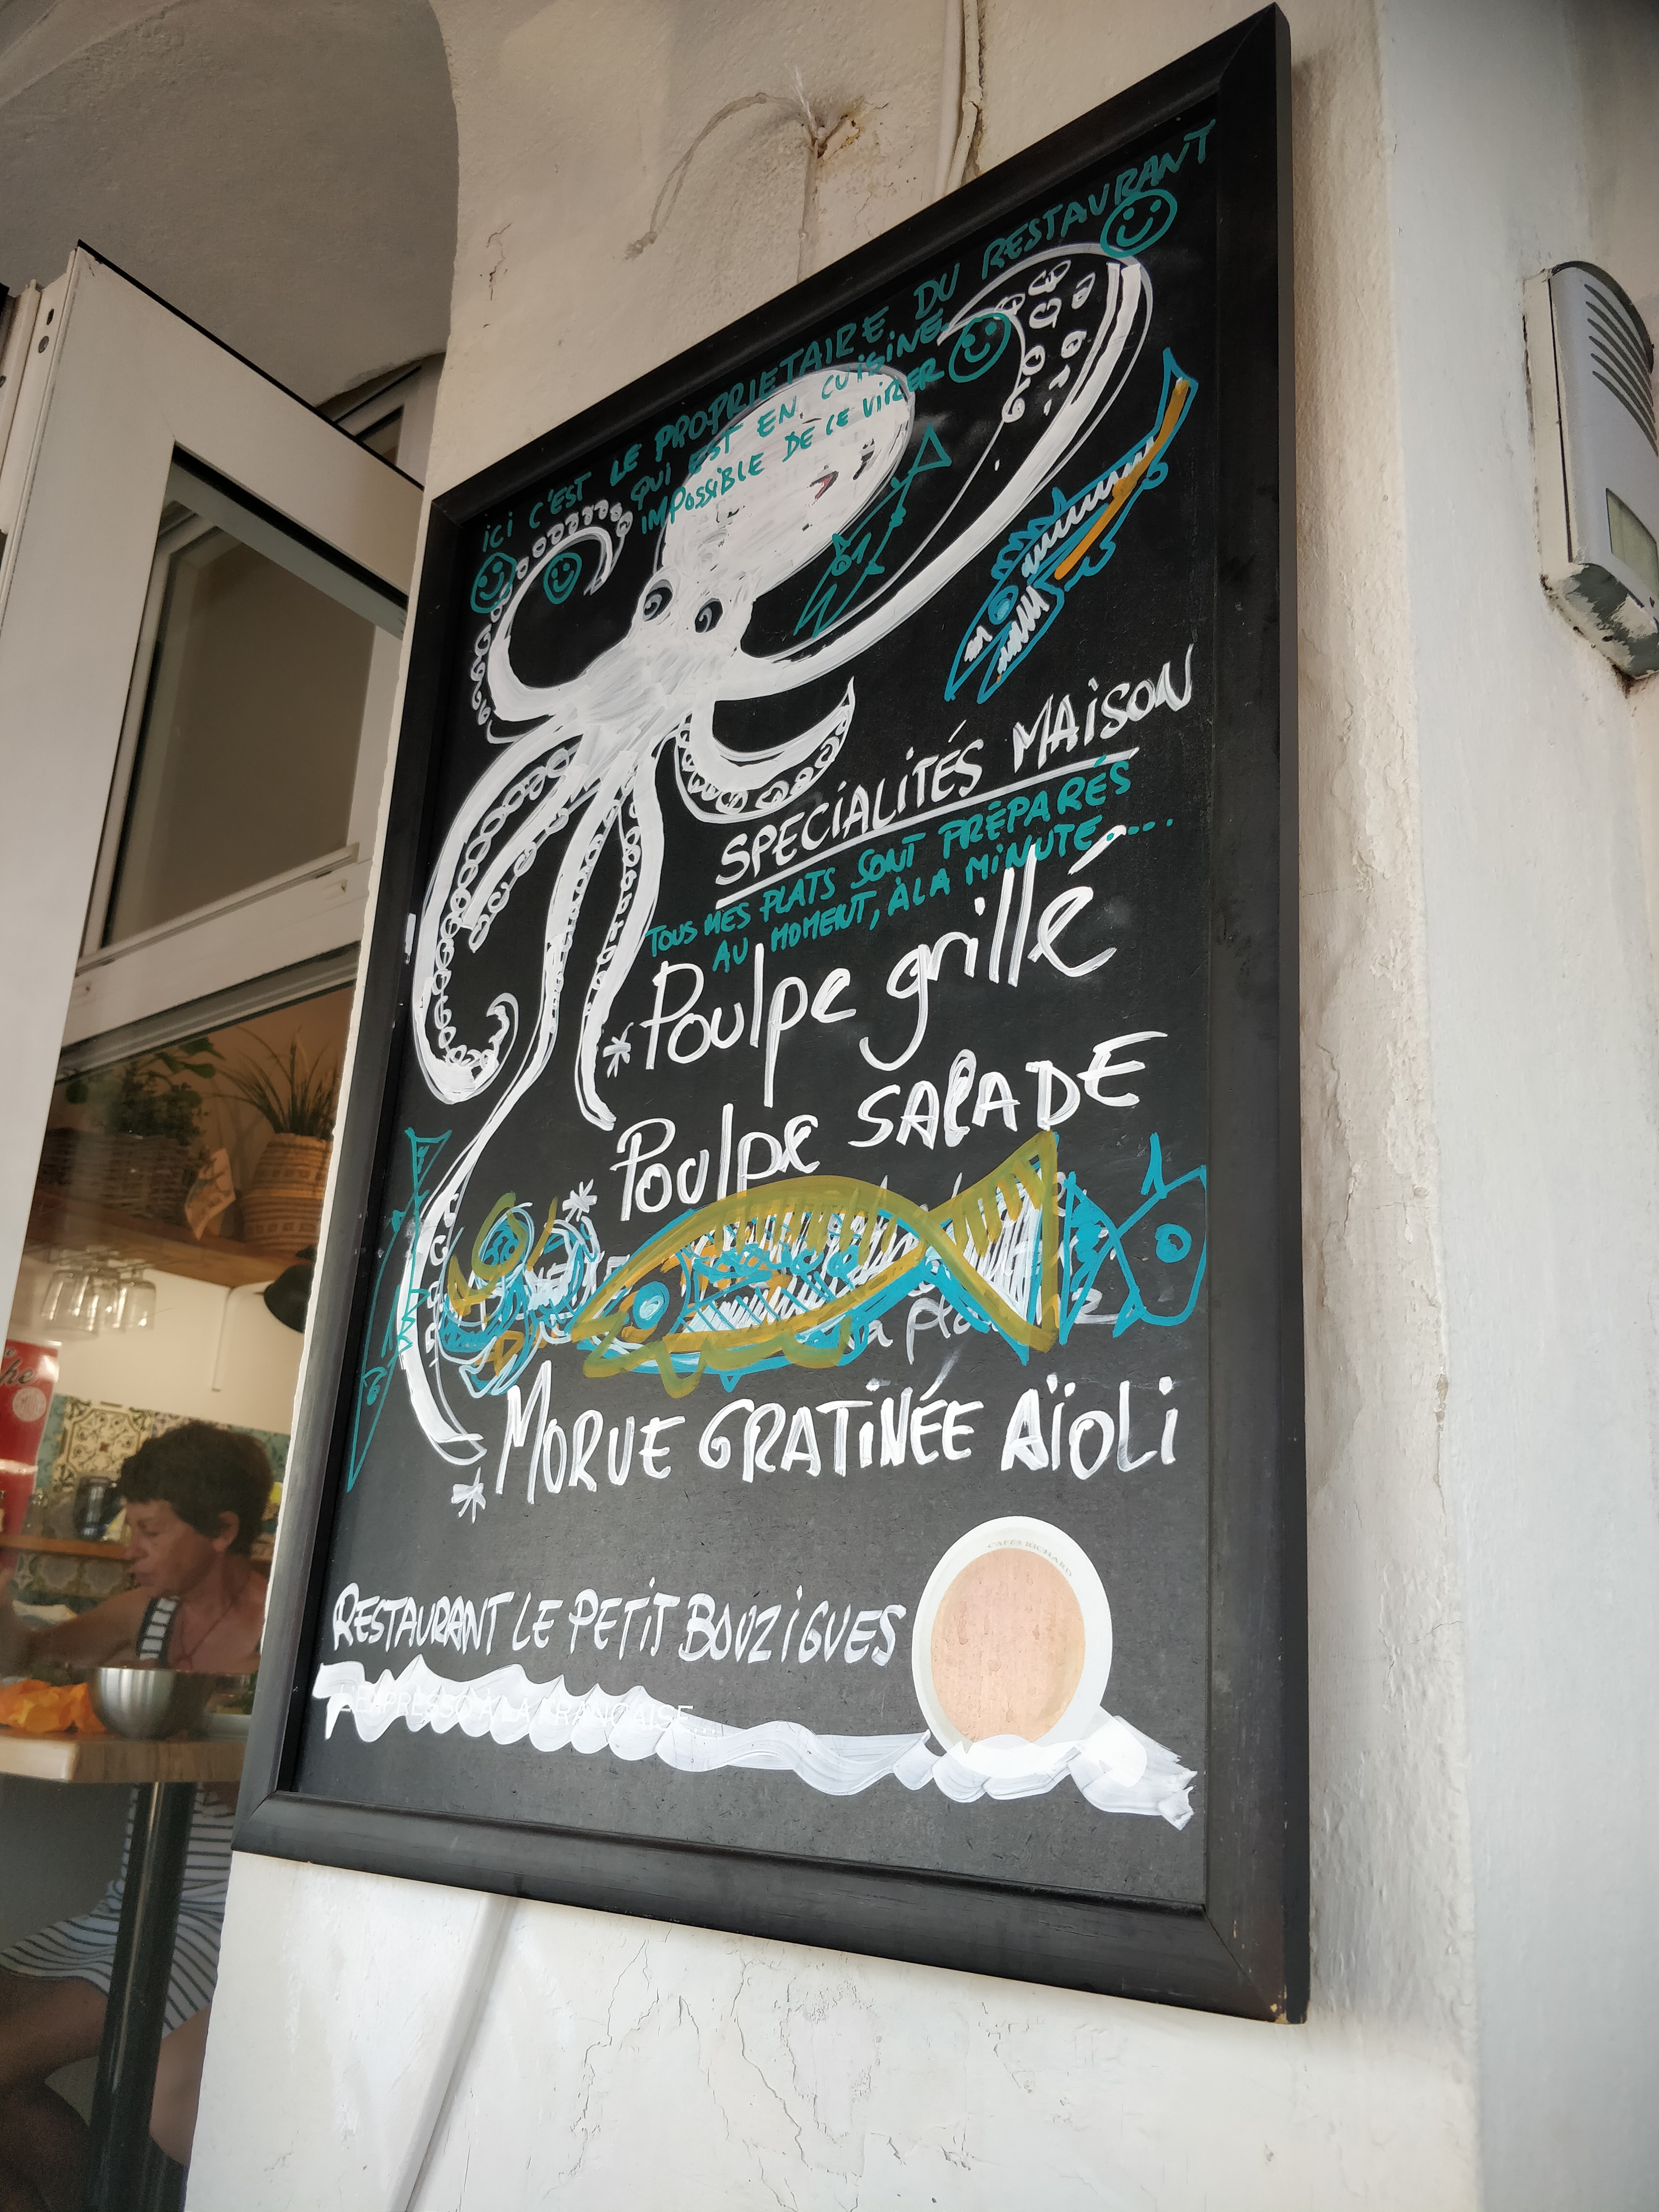 iCi C'EST LE PROPRIETAIRE DU RESTAURANT
QUI EST EN CUISINE
IMPOSSIBLE DE LE VIRER
SPECIALITÉS MAISON
TOUS MES PLATS SONT PRÉPARÉS
AU MOMENT, À LA MINUTE.....
*Poulpe grillé
Poulpe SALADE
*
a pla
* MORUE GRATINÉE AÏOLI
CAFÉS RICHARD
RESTAURANT LE PETIT BOUZIGUES
L'EXPRESSO À LA FRANÇAISE...
he